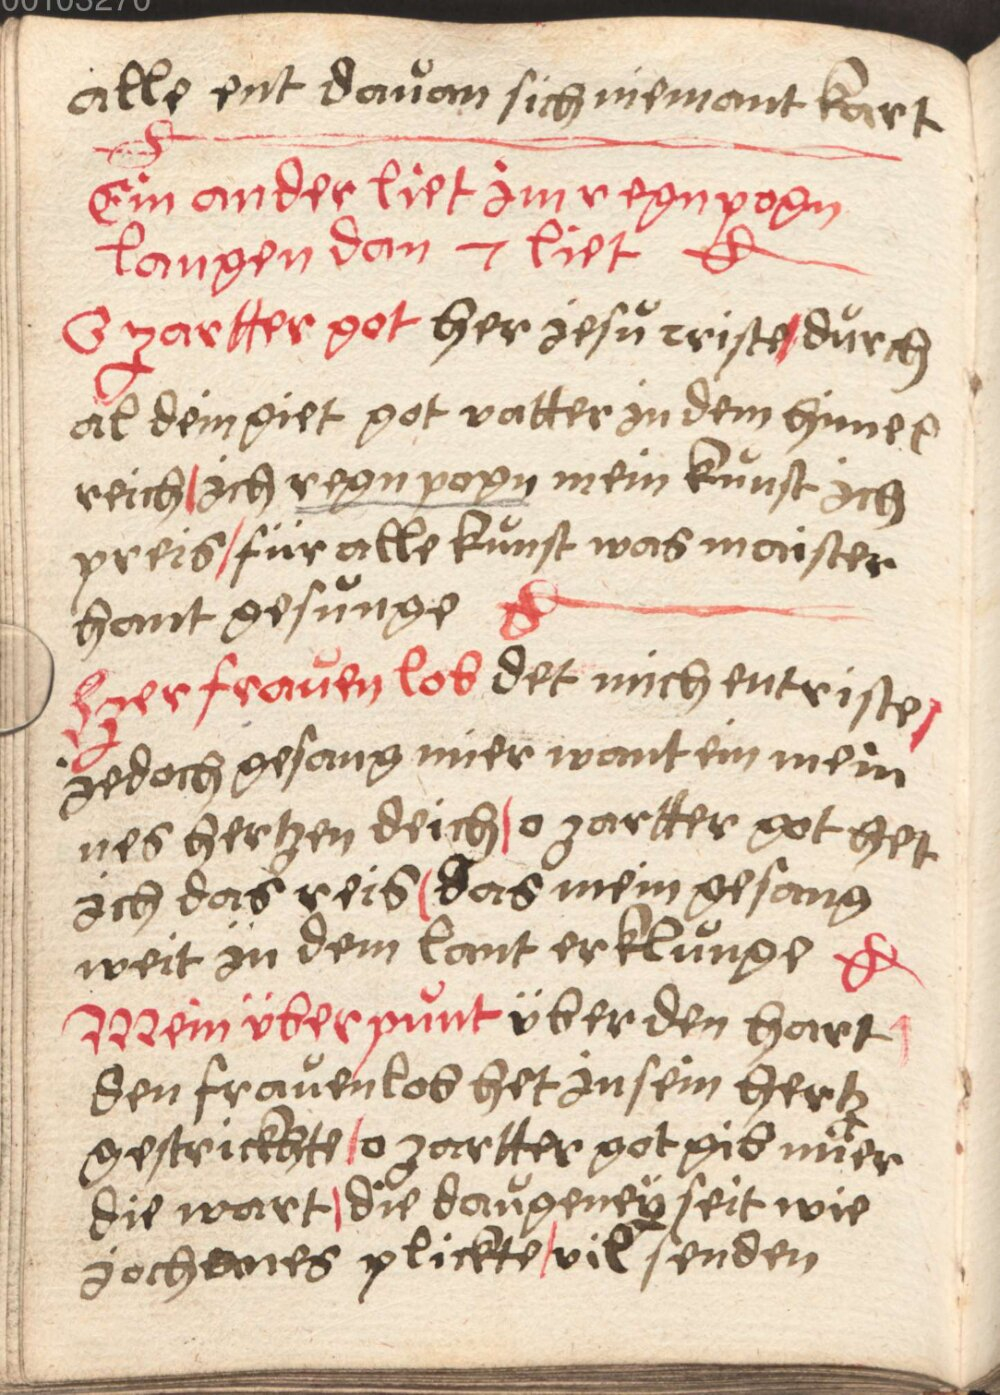 00103270
alle ent davan sich niemant kart
Ein ander liet im regnpogn
langen dan 7 liet
O zartter got her jesu criste / durch
al dein giet got vatter in dem himel
reich / ich regnpogn mein kunst ich
preis / für alle kunst was maister
hant gesunge
Her frauenlob det mich entriste /
jedoch gesang mier want ein mei
nes hertzen deich / o zartter got het
ich das reis / das mein gesang
weit in dem lant erklunge
Mein überpunt über den hart /
den frauenlob het in sein hertz
gestrickte / o zartter got gib mier
die wart / die daugeney seit wie
johanes plickte / vil senden